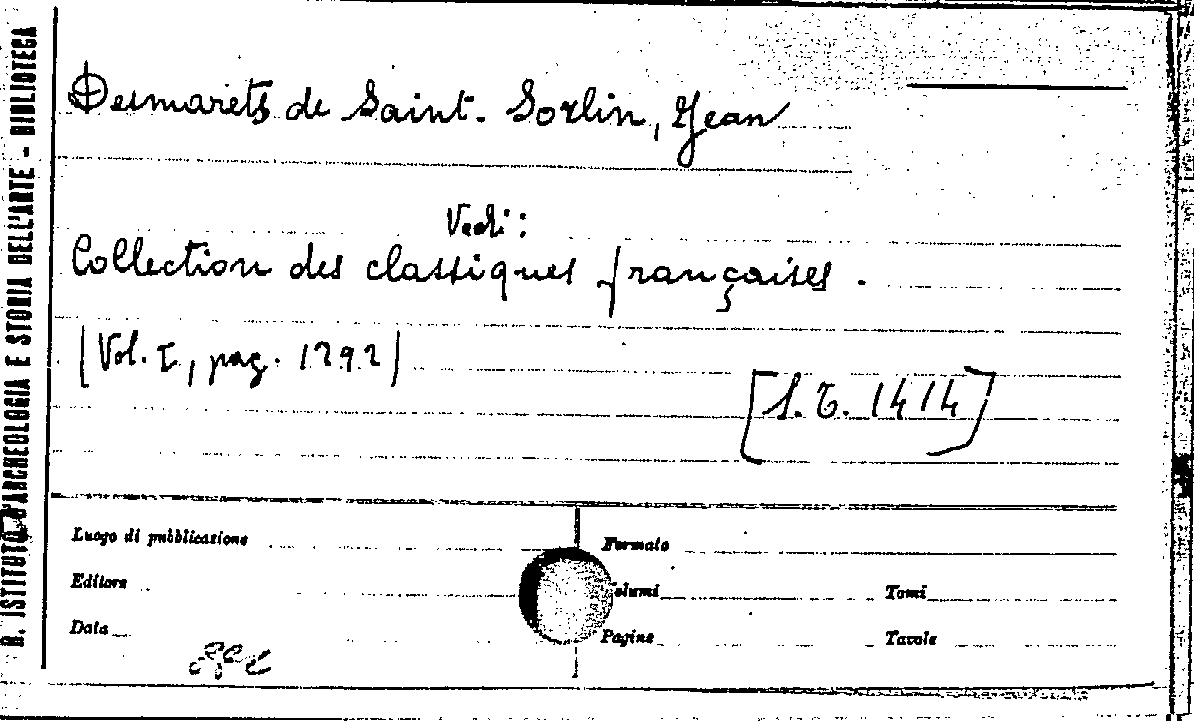 R. ISTITUTO D'ARCHEOLOGIA E STORIA DELL'ARTE - BIBLIOTECA
Desmarets de Saint-Sorlin, Jean
Vedi:
Collection des classiques françaises.
[Vol. I, pag. 1292]
[S.T. 1414]
Luogo di pubblicazione
Formato
Editore
Volumi
Tomi
Data
Pagine
Tavole